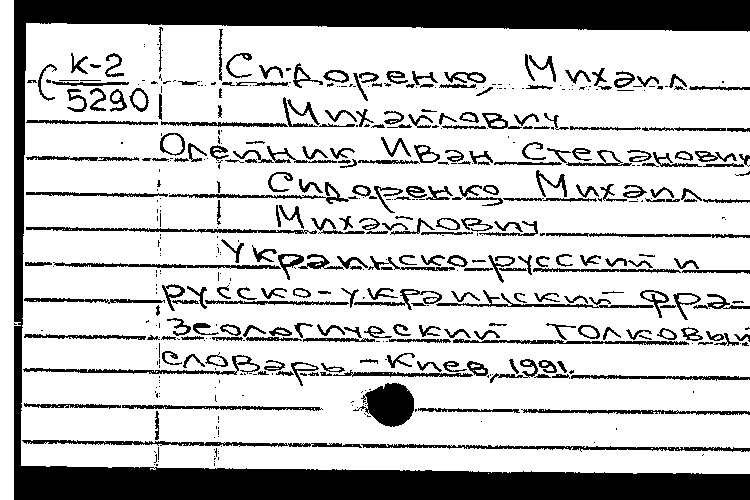 К-2
5290
Сидоренко, Михаил
Михайлович
Олейник, Иван Степанович
Сидоренко, Михаил
Михайлович
Украинско-русский и
русско-украинский фра-
зеологический толковый
словарь. - Киев, 1991.